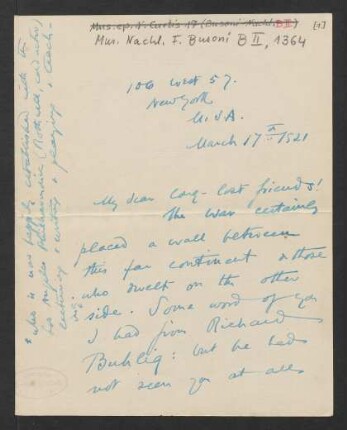 Mus. ep. N. Curtis 17 (Busoni-Nachl. B II)
[1]
Mus. Nachl. F. Busoni B II, 1364
106 West 57.
New York
U.S.A.
March 17th 1921
My dear long-lost friends!
The war certainly
placed a wall between
this far continent & those
who dwelt on the other
side. Some word of you
I had from Richard
Buhlig: but he had
not seen you at all
who is now happily established with the
Los Angeles Philharmonic (Rothwell, conductor)
lecturing & writing & playing & teach-
ing.